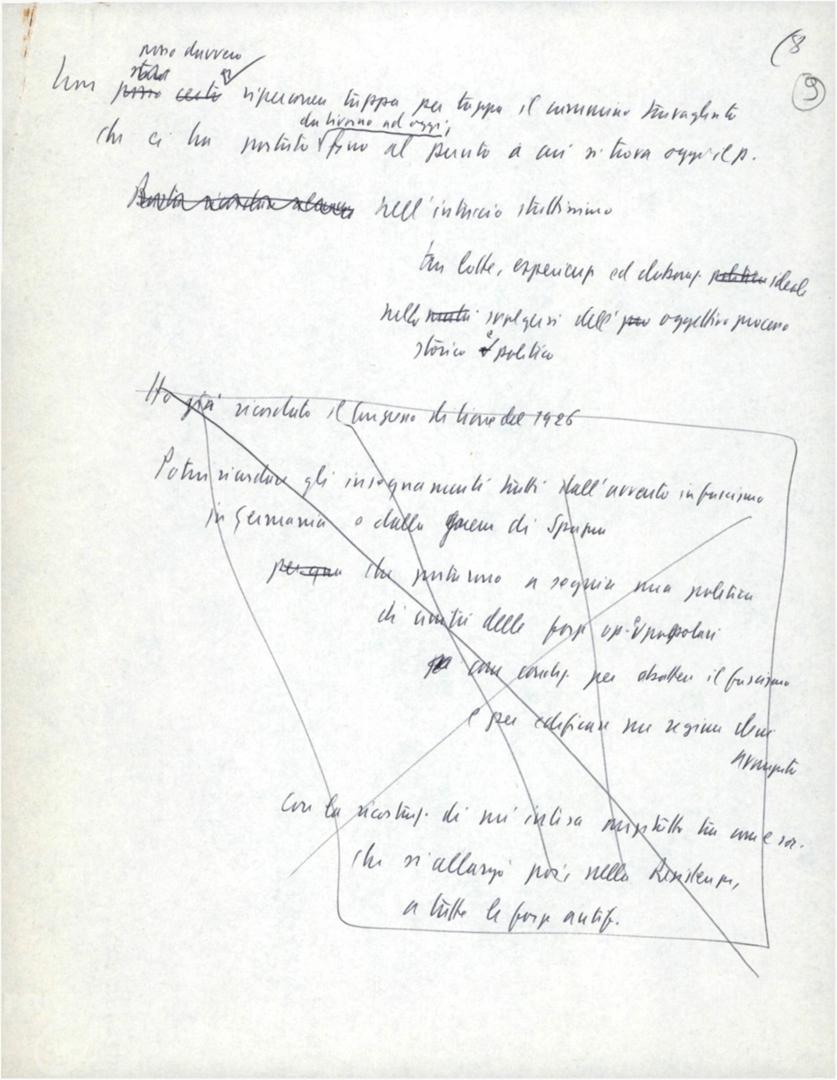 (8
9
posso davvero
Non posso certo ripercorrere tappa per tappa il cammino travagliato
da Livorno ad oggi,
che ci ha portato fino al punto a cui si trova oggi il p.
nell'intreccio strettissimo
tra lotte, esperienze ed elaboraz. politica ideale
nello svolgersi dell' oggettivo processo
storico e politico
Ho già ricordato il Congresso di Lione del 1926
Potrei ricordare gli insegnamenti tratti dall'avvento in fascismo
in Germania e dalla guerra di Spagna
che portarono a seguire una politica
di unità delle forze op. e popolari
come condiz. per abbattere il fascismo
e per edificare un regime dem
avanzato
Con la ricostruz. di un'intesa anzitutto tra com e soc.
che si allargò poi, nella Resistenza,
a tutte le forze antif.